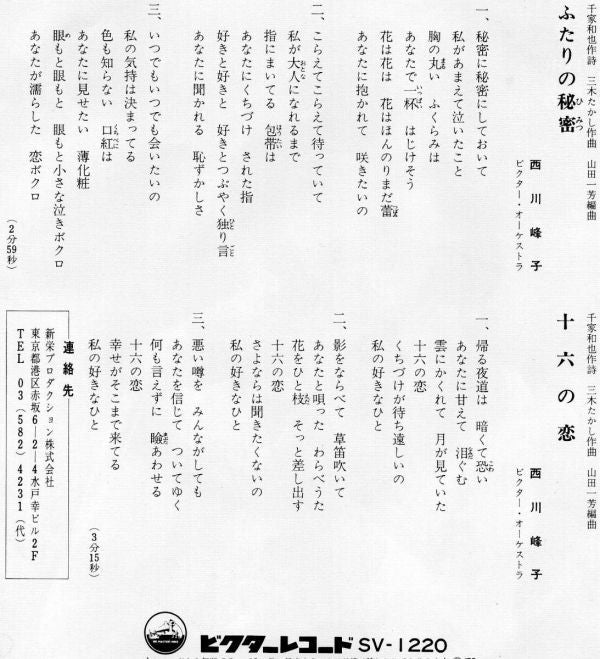 千家和也作詩 三木たかし作曲 山田一芳編曲
ふたりの秘密
西川峰子
ビクター・オーケストラ
一、秘密に秘密にしておいて
私があまえて泣いたこと
胸の丸い ふくらみは
あなたで一杯 はじけそう
花は花は 花はほんのりまだ蕾
あなたに抱かれて 咲きたいの
二、こらえてこらえて待っていて
私が大人になれるまで
指にまいてる 包帯は
あなたにくちづけ された指
好きと好きと 好きとつぶやく独り言
あなたに聞かれる 恥ずかしさ
三、いつでもいつでも会いたいの
私の気持は決まってる
色も知らない 口紅は
あなたに見せたい 薄化粧
眼もと眼もと 眼もと小さな泣きボクロ
あなたが濡らした 恋ボクロ
(2分59秒)
千家和也作詩 三木たかし作曲 山田一芳編曲
十六の恋
西川峰子
ビクター・オーケストラ
一、帰る夜道は 暗くて恐い
あなたに甘えて 泪ぐむ
雲にかくれて 月が見ていた
十六の恋
くちづけが待ち遠しいの
私の好きなひと
二、影をならべて 草笛吹いて
あなたと唄った わらべうた
花をひと枝 そっと差し出す
十六の恋
さよならは聞きたくないの
私の好きなひと
三、悪い噂を みんながしても
あなたを信じて ついてゆく
何も言えずに 瞼あわせる
十六の恋
幸せがそこまで来てる
私の好きなひと
(3分15秒)
連絡先
新栄プロダクション株式会社
東京都港区赤坂6-2-4水戸幸ビル2F
TEL 03(582)4231(代)
ビクターレコード SV-1220